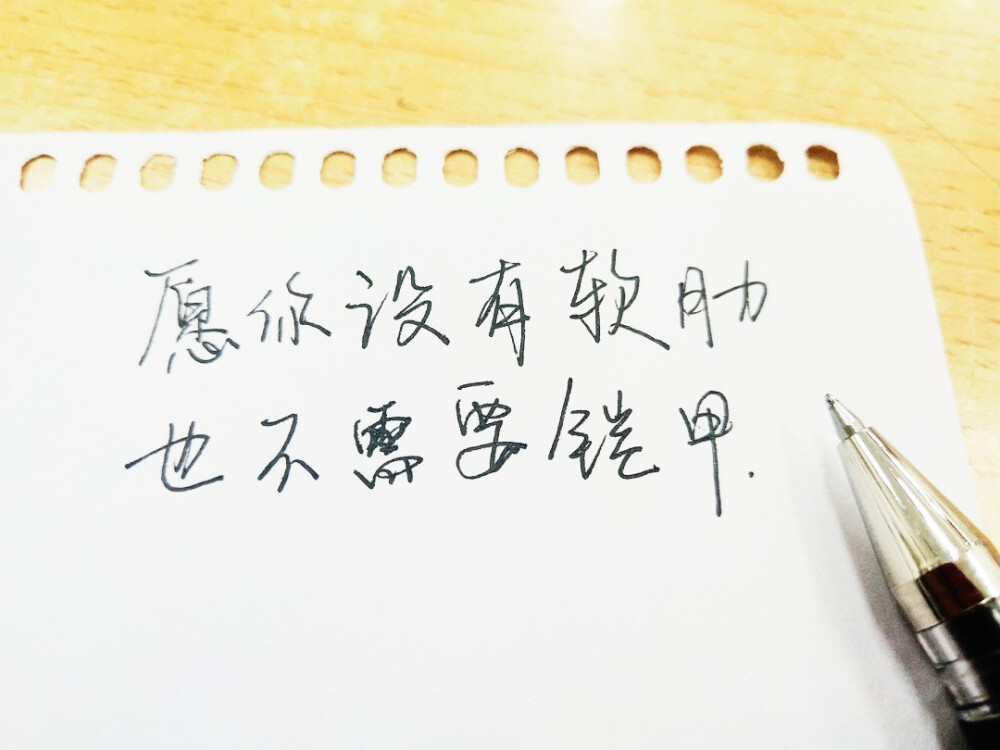 愿你没有软肋
也不需要铠甲.